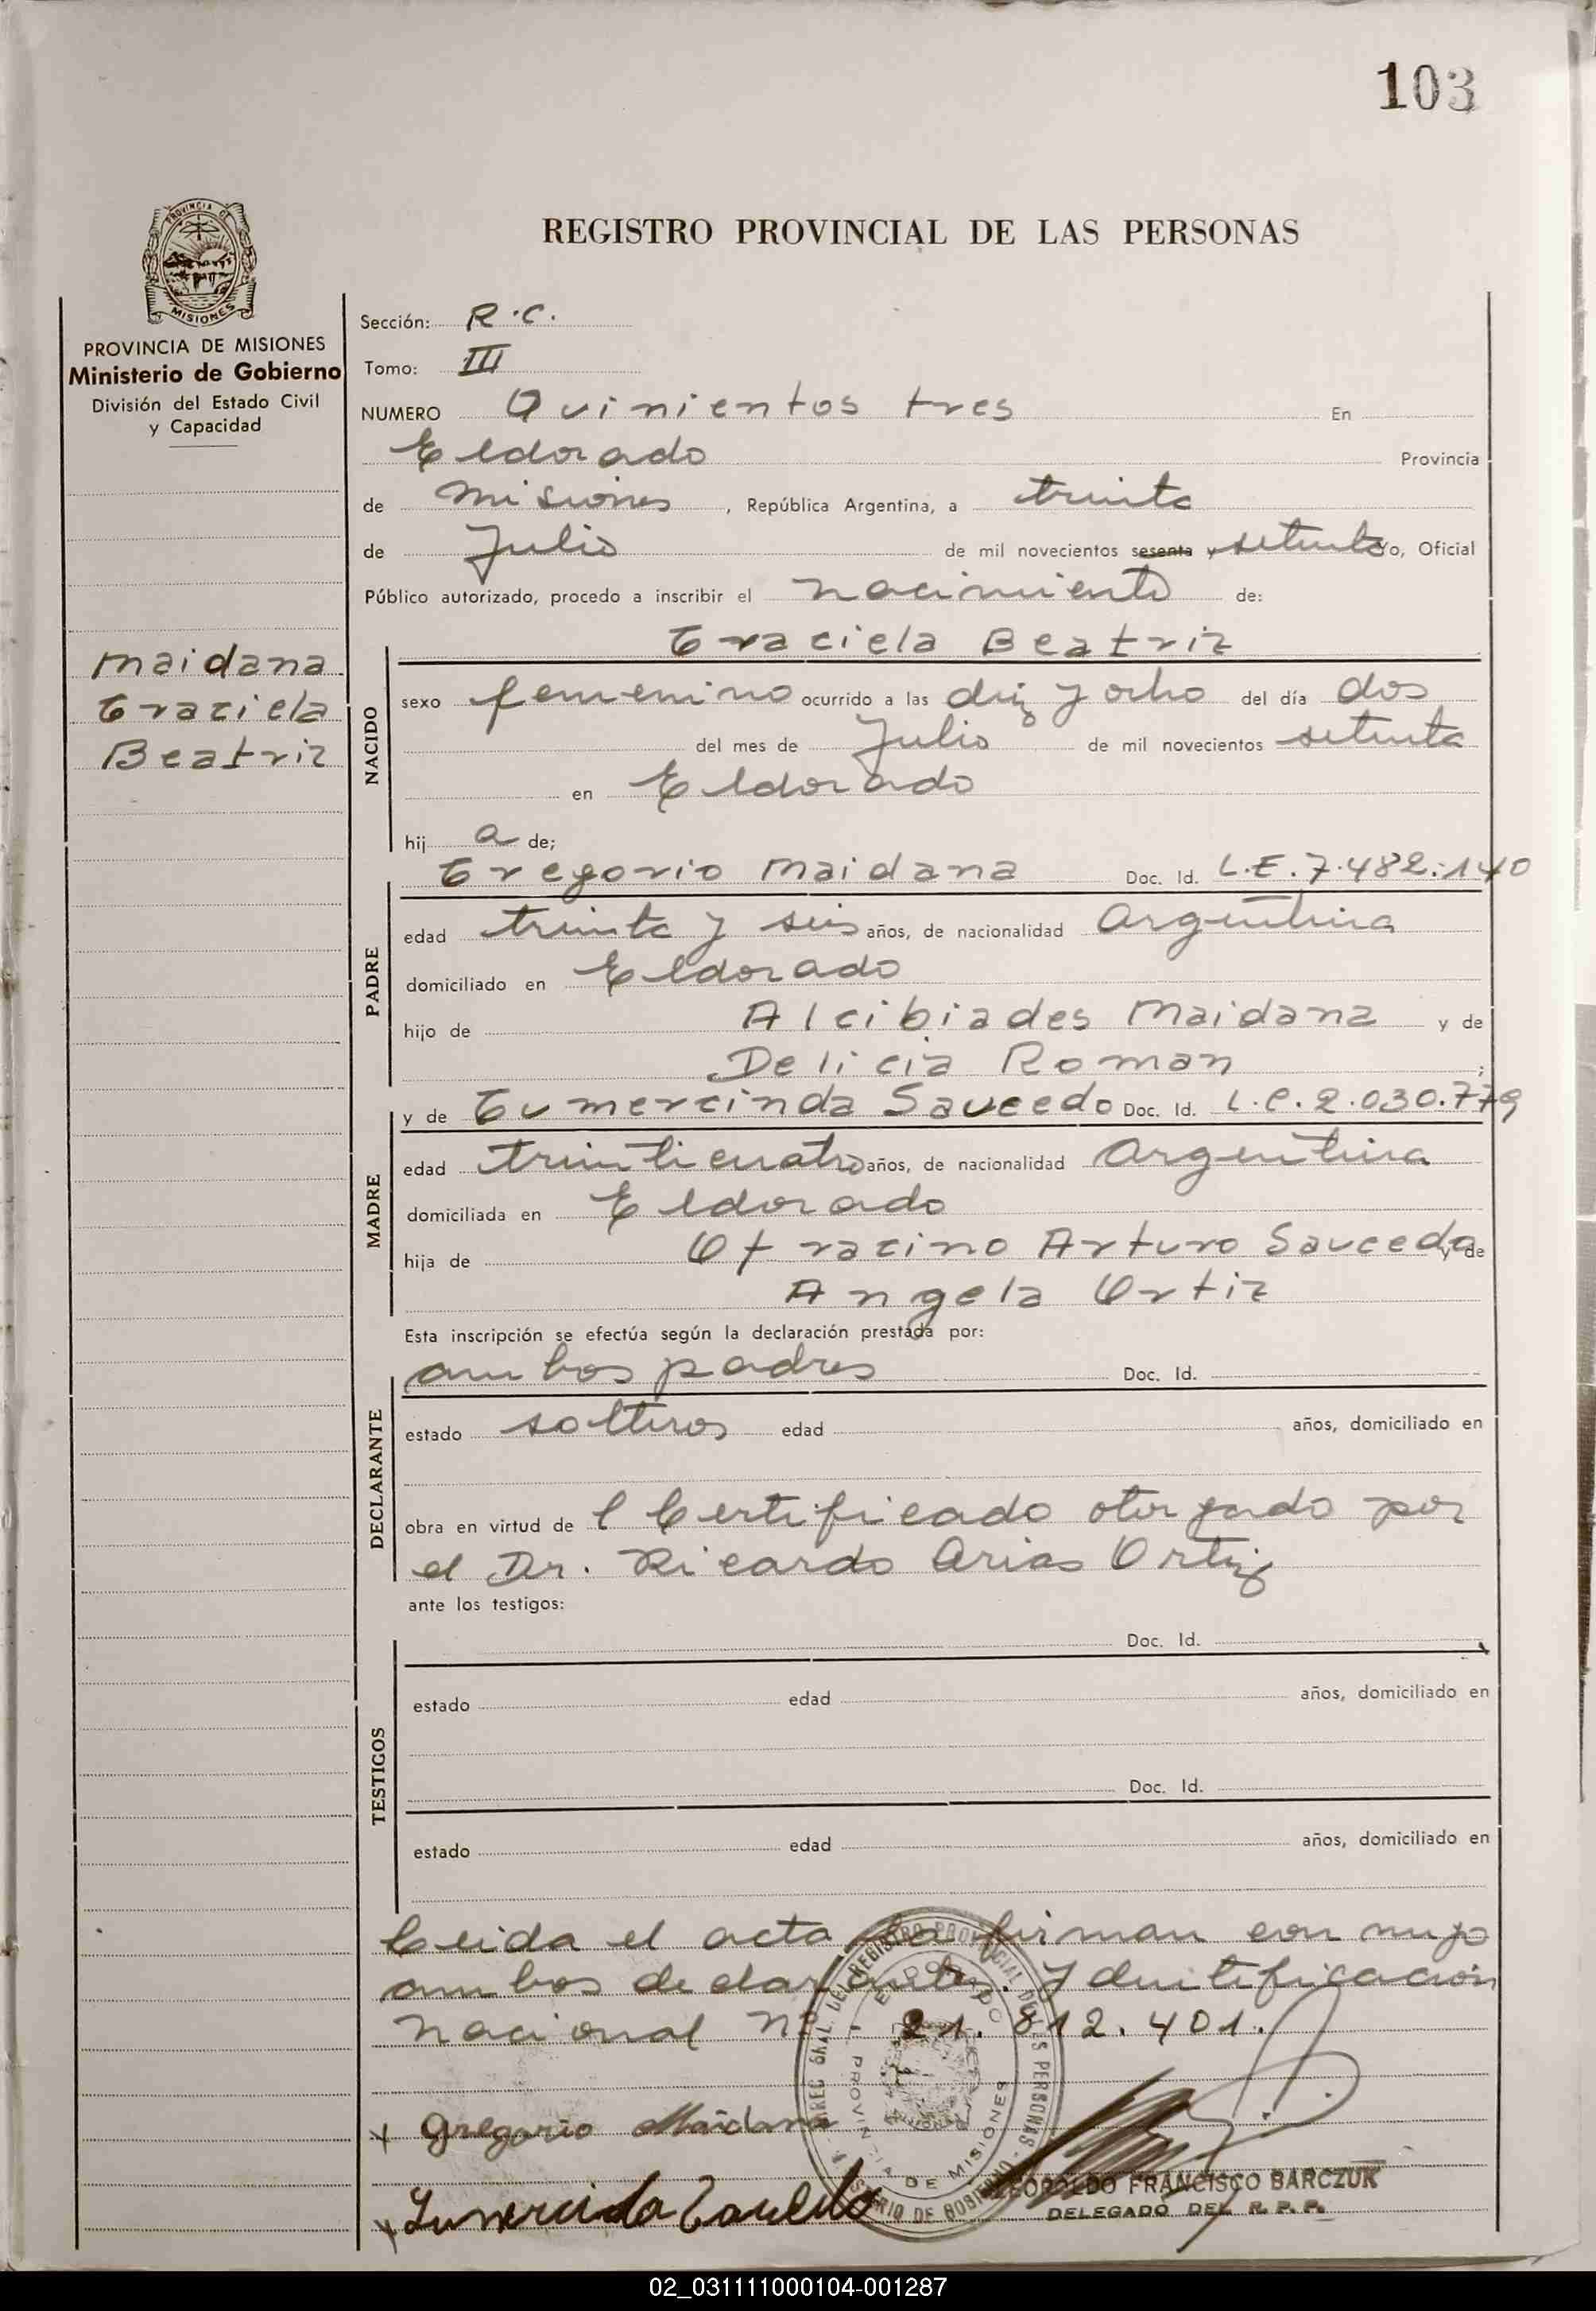 103
PROVINCIA DE
MISIONES
REGISTRO PROVINCIAL DE LAS PERSONAS
PROVINCIA DE MISIONES
Ministerio de Gobierno
División del Estado Civil
y Capacidad
Maidana
Graciela
Beatriz
Sección: R.C.
Tomo: III
NUMERO Quinientos tres En
Eldorado Provincia
de Misiones, República Argentina, a treinta
de Julio de mil novecientos sesenta y setenta Yo, Oficial
Público autorizado, procedo a inscribir el nacimiento de:
Graciela Beatriz
NACIDO
sexo femenino ocurrido a las diez y ocho del día dos
del mes de Julio de mil novecientos setenta
en Eldorado
hij a de;
Gregorio Maidana Doc. Id. L.E. 7.482.140
PADRE
edad treinta y seis años, de nacionalidad Argentina
domiciliado en Eldorado
hijo de Alcibiades Maidana y de
Delicia Roman;
y de Gumercinda Saucedo Doc. Id. L.C. 2.030.779
MADRE
edad treinticuatro años, de nacionalidad Argentina
domiciliada en Eldorado
hija de Arturo Saucedo y de
Angela Ortiz
Esta inscripción se efectúa según la declaración prestada por:
ambos padres Doc. Id.
DECLARANTE
estado solteros edad años, domiciliado en
obra en virtud del Certificado otorgado por
el Dr. Ricardo Arias Ortiz
ante los testigos:
Doc. Id.
TESTIGOS
estado edad años, domiciliado en
Doc. Id.
estado edad años, domiciliado en
Leida el acta la firman con migo
ambos declarantes. Identificación
Nacional Nº 21.812.401.
Gregorio Maidana
LEOPOLDO FRANCISCO BARCZUK
DELEGADO DEL R. P. P.
02_031111000104-001287